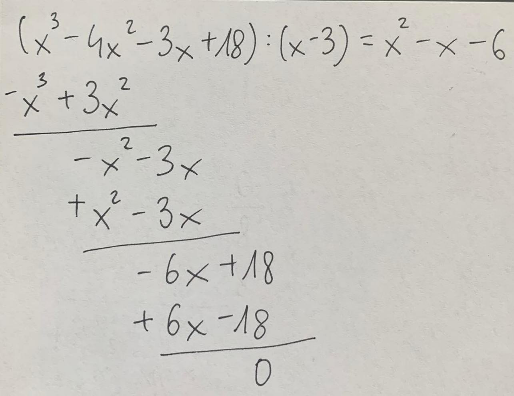 (x³ - 4x² - 3x + 18) : (x - 3) = x² - x - 6
- x³ + 3x²
- x² - 3x
+ x² - 3x
- 6x + 18
+ 6x - 18
0